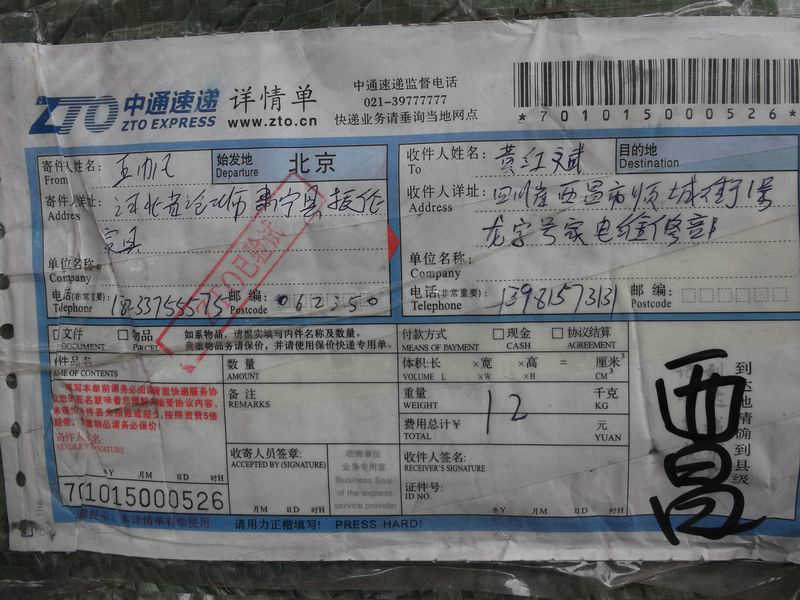 ZTO 中通速递 详情单
ZTO EXPRESS www.zto.cn
中通速递监督电话
021-39777777
快递业务请垂询当地网点
*701015000526*
寄件人姓名:
From
始发地 北京
Departure
寄件人详址: 河北省沧州市肃宁县
Addres
单位名称:
Company
电话(非常重要): 18233755575 邮编: 062350
Telephone Postcode
已验试
收件人姓名: 黄江斌
To
目的地
Destination
收件人详址: 四川省西昌市顺城街1号
Address
龙字号家电维修部
单位名称:
Company
电话(非常重要): 13981573131 邮编:
Telephone Postcode
文件 物品
DOCUMENT PARCEL
如系物品,请据实填写内件名称及数量。
贵重物品请保价,并请使用保价快递专用单。
付款方式 现金 协议结算
MEANS OF PAYMENT CASH AGREEMENT
件品名
NAME OF CONTENTS
数量
AMOUNT
体积:长 ×宽 ×高 = 厘米³
VOLUME L ×W ×H CM³
备注
REMARKS
重量 12 千克
WEIGHT KG
费用总计¥ 元
TOTAL YUAN
寄件人签名
SENDER'S SIGNATURE
年Y 月M 日D 时H
收寄人员签章:
ACCEPTED BY (SIGNATURE)
月M 日D 时H
收寄单位
业务专用章
Business Seal
of the express
service provider
收件人签名:
RECEIVER'S SIGNATURE
证件号:
ID NO.
年Y 月M 日D 时H
到达地请确到县级
西昌
701015000526
请用力正楷填写! PRESS HARD!